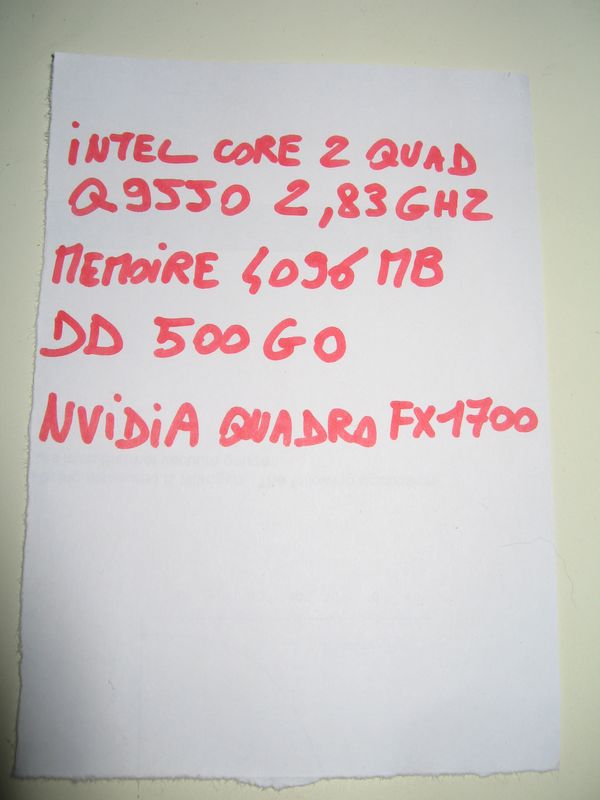 INTEL CORE 2 QUAD
Q9550 2,83 GHZ
MEMOIRE 4096 MB
DD 500 GO
NVIDIA QUADRO FX1700